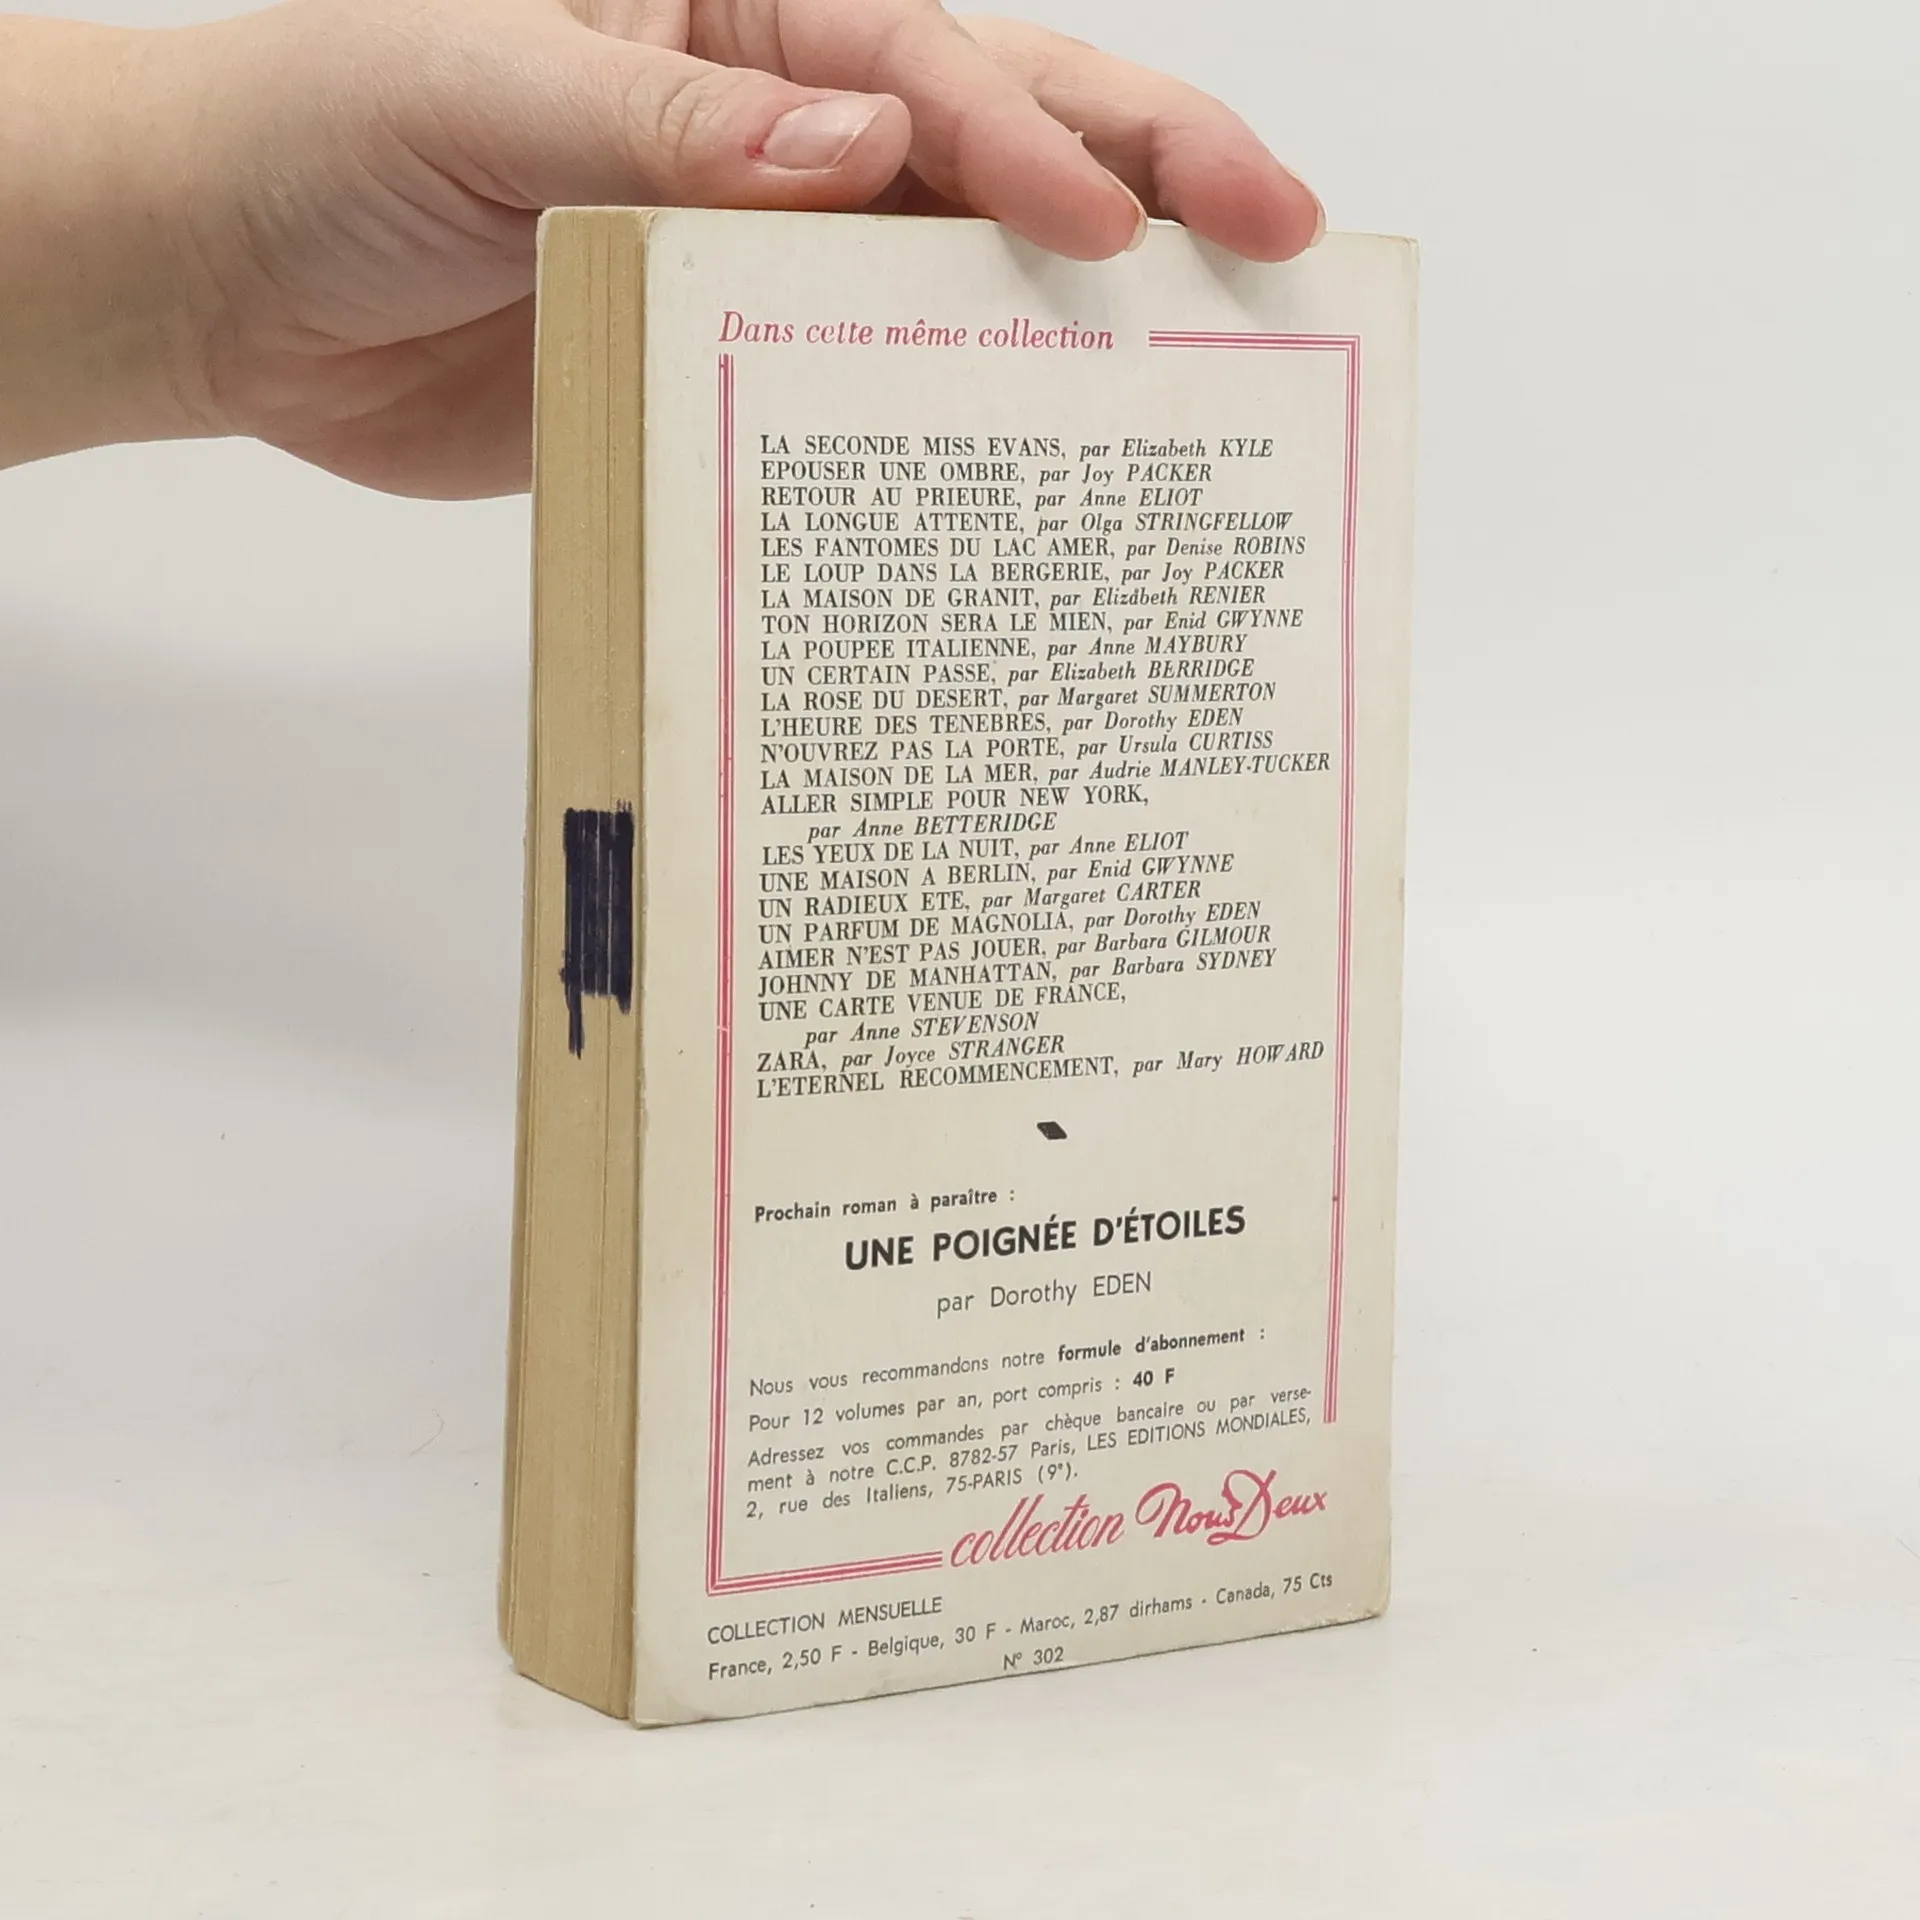 Dans cette même collection
LA SECONDE MISS EVANS, par Elizabeth KYLE
EPOUSER UNE OMBRE, par Joy PACKER
RETOUR AU PRIEURE, par Anne ELIOT
LA LONGUE ATTENTE, par Olga STRINGFELLOW
LES FANTOMES DU LAC AMER, par Denise ROBINS
LE LOUP DANS LA BERGERIE, par Joy PACKER
LA MAISON DE GRANIT, par Elizabeth RENIER
TON HORIZON SERA LE MIEN, par Enid GWYNNE
LA POUPEE ITALIENNE, par Anne MAYBURY
UN CERTAIN PASSE, par Elizabeth BERRIDGE
LA ROSE DU DESERT, par Margaret SUMMERTON
L'HEURE DES TENEBRES, par Dorothy EDEN
N'OUVREZ PAS LA PORTE, par Ursula CURTISS
LA MAISON DE LA MER, par Audrie MANLEY-TUCKER
ALLER SIMPLE POUR NEW YORK,
par Anne BETTERIDGE
LES YEUX DE LA NUIT, par Anne ELIOT
UNE MAISON A BERLIN, par Enid GWYNNE
UN RADIEUX ETE, par Margaret CARTER
UN PARFUM DE MAGNOLIA, par Dorothy EDEN
AIMER N'EST PAS JOUER, par Barbara GILMOUR
JOHNNY DE MANHATTAN, par Barbara SYDNEY
UNE CARTE VENUE DE FRANCE,
par Anne STEVENSON
ZARA, par Joyce STRANGER
L'ETERNEL RECOMMENCEMENT, par Mary HOWARD
Prochain roman à paraître :
UNE POIGNÉE D'ÉTOILES
par Dorothy EDEN
Nous vous recommandons notre formule d'abonnement :
Pour 12 volumes par an, port compris : 40 F
Adressez vos commandes par chèque bancaire ou par verse-
ment à notre C.C.P. 8782-57 Paris, LES EDITIONS MONDIALES,
2, rue des Italiens, 75-PARIS (9°).
collection Nous Deux
COLLECTION MENSUELLE
France, 2,50 F - Belgique, 30 F - Maroc, 2,87 dirhams - Canada, 75 Cts
N° 302